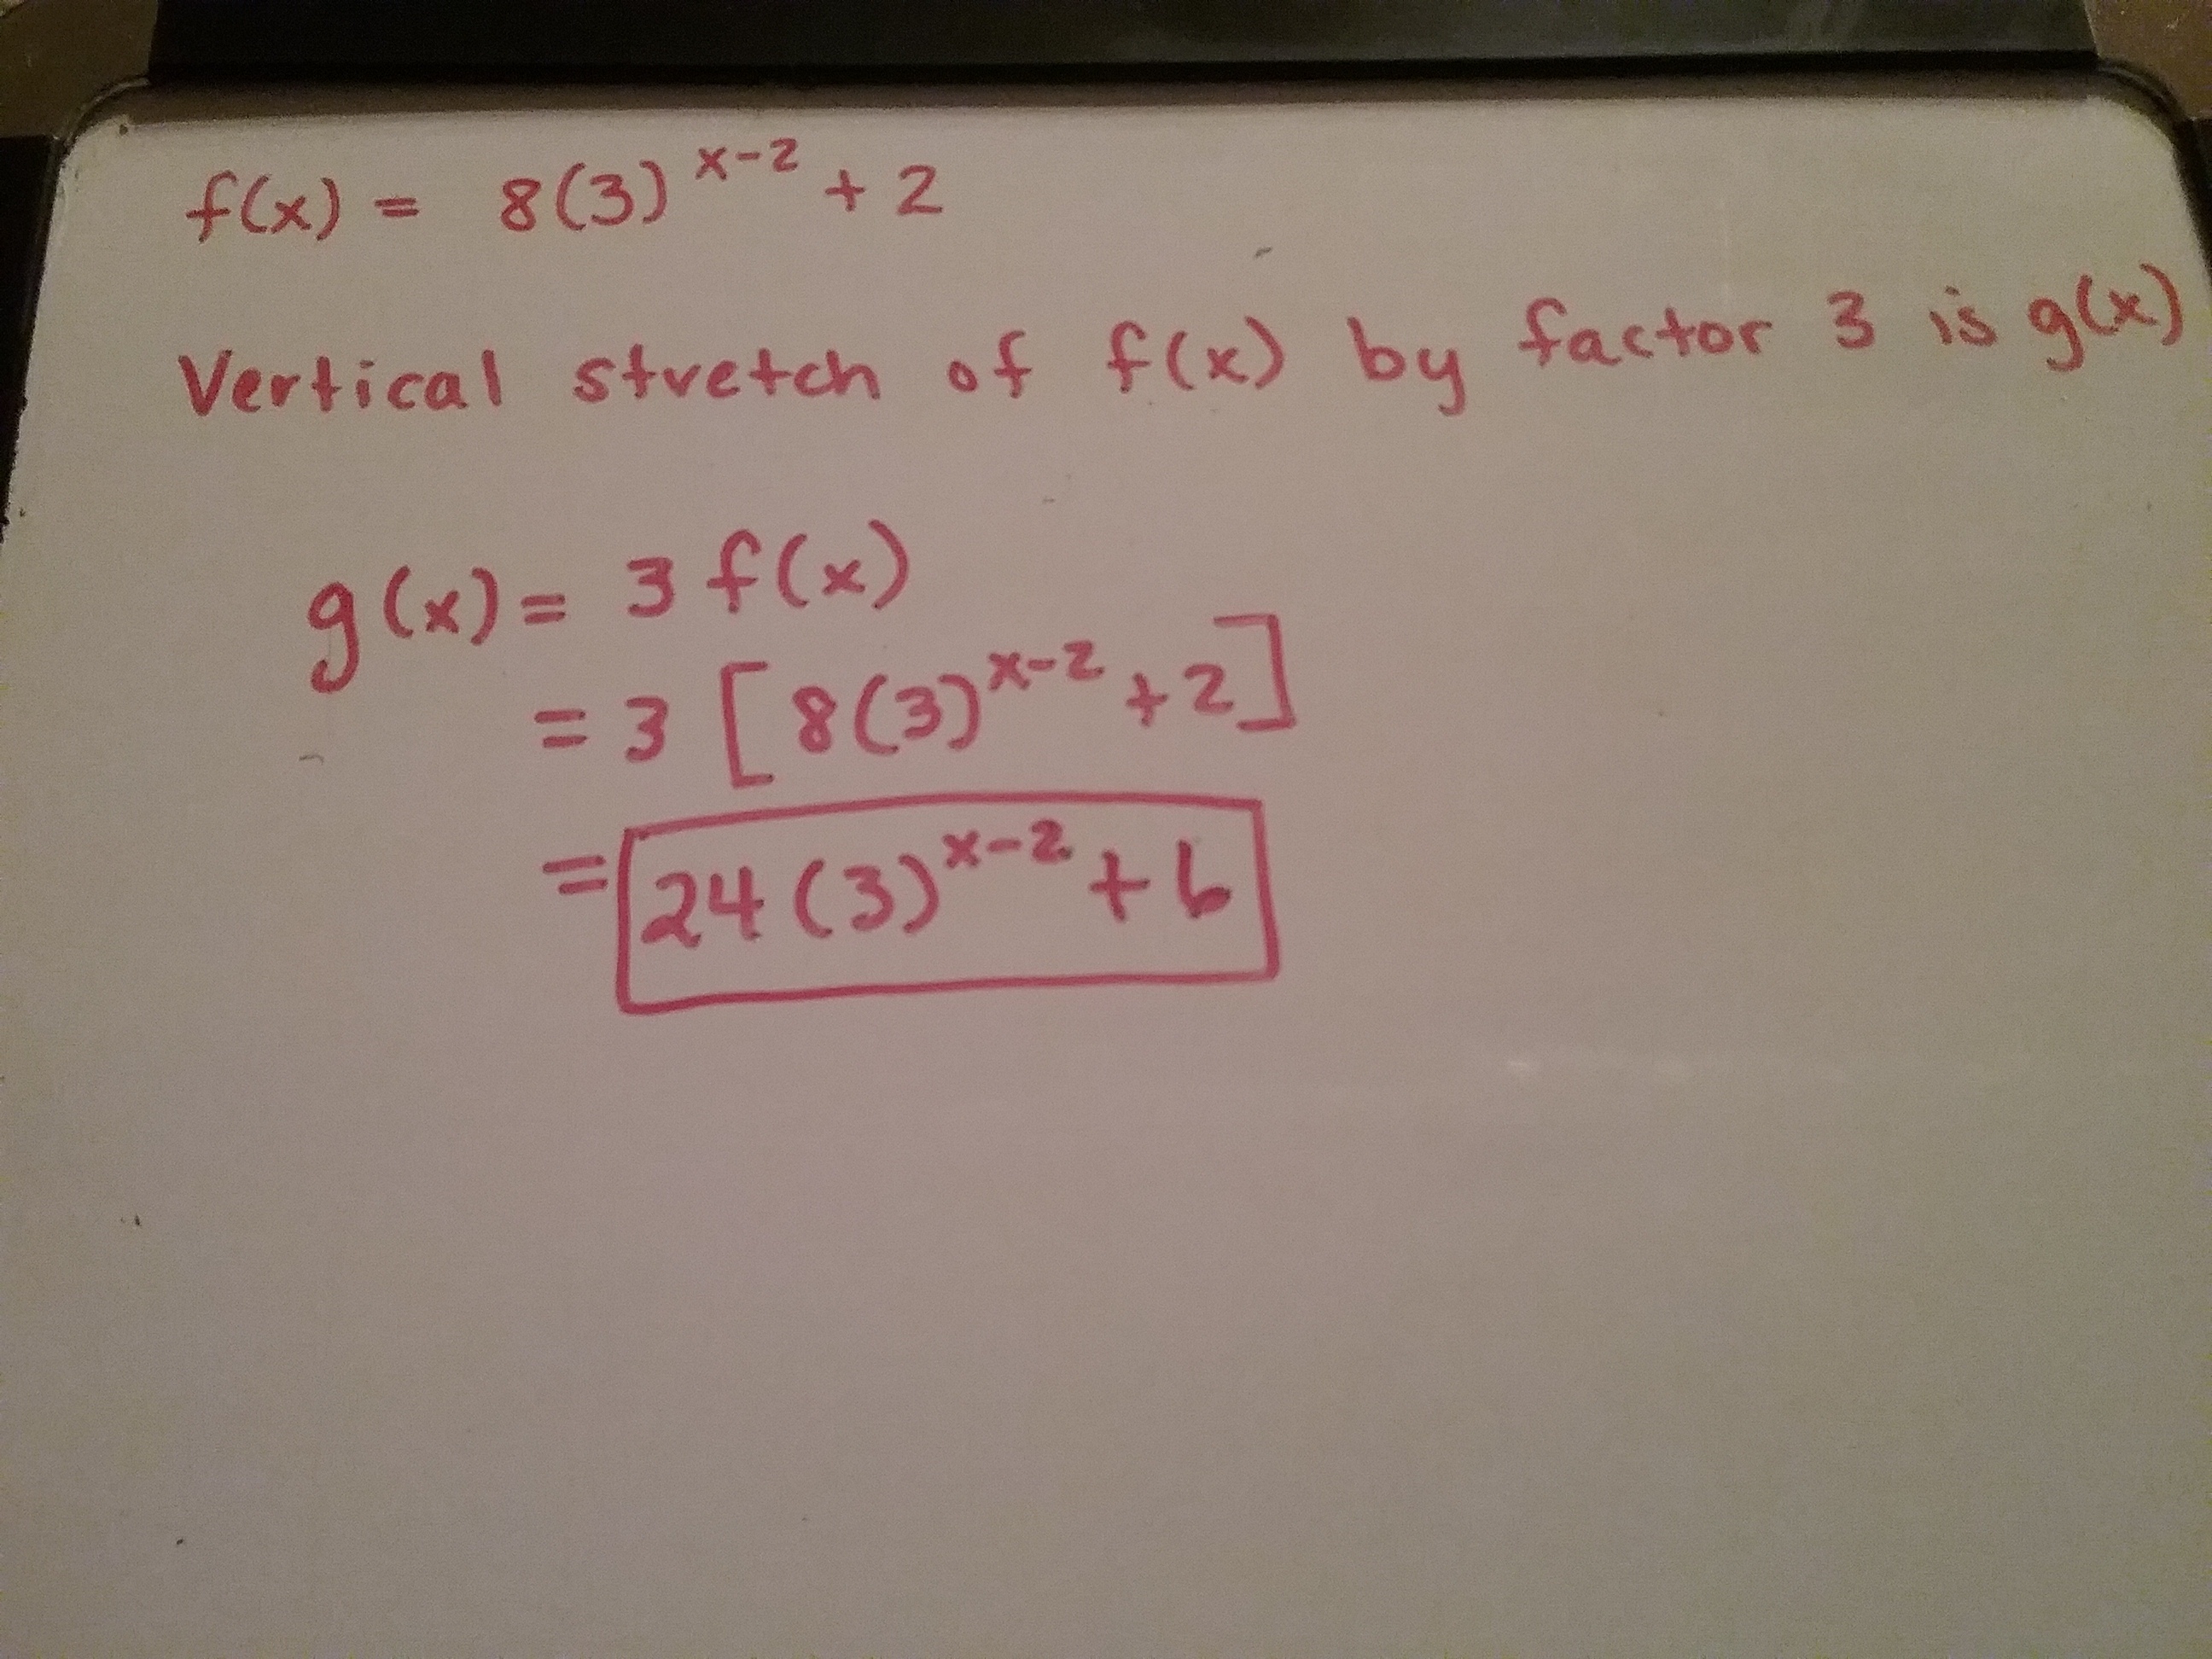 f(x) = 8(3)^{x-2} + 2
Vertical stretch of f(x) by factor 3 is g(x)
g(x) = 3 f(x)
= 3 [8(3)^{x-2} + 2]
= 24(3)^{x-2} + 6